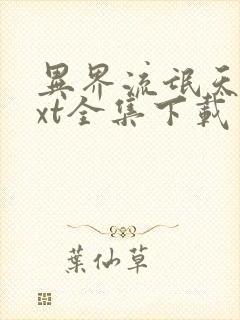 異界流氓天
xt全集下載
葉仙草